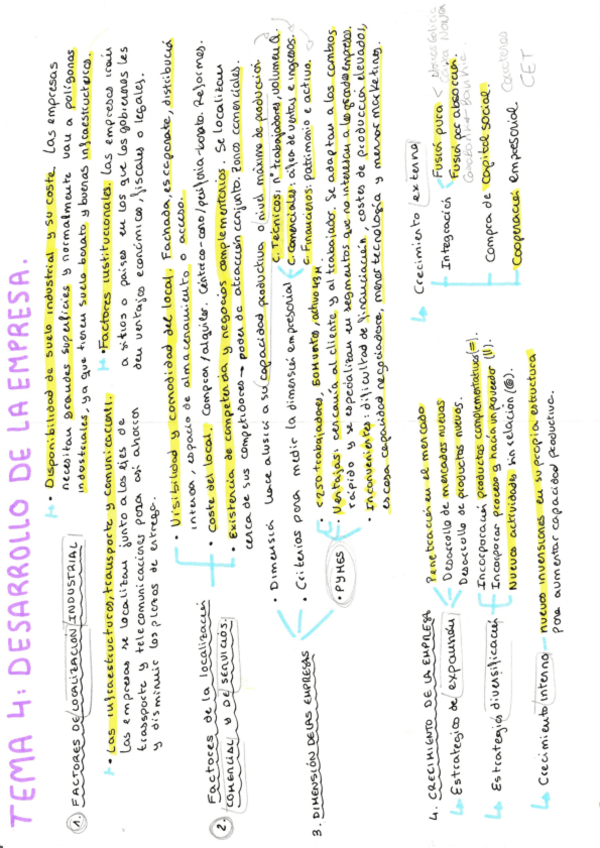 TEMA 4: DESARROLLO DE LA EMPRESA.
1. FACTORES DE LOCALIZACIÓN INDUSTRIAL
• Disponibilidad de suelo industrial y su coste. Las empresas
necesitan grandes superficies y normalmente van a polígonos
industriales, ya que tienen suelo barato y buenas infraestructuras.
• Las infraestructuras, transporte y comunicación.
Las empresas se localizan junto a los ejes de
transporte y telecomunicaciones para así ahorrar
y disminuir los plazos de entrega.
• Factores institucionales. Las empresas irán
a sitios o países en los que los gobiernos les
den ventajas económicas, fiscales o legales.
2. Factores de la localización
COMERCIAL Y DE SERVICIOS.
• Visibilidad y comodidad del local. Fachada, escaparate, distribución
interna, espacio de almacenamiento o acceso.
• Coste del local. Compran/alquiler. Céntrico-caro/periferia-barato. Reformas.
• Existencia de competencia y negocios complementarios. Se localizan
cerca de sus competidores → poder de atracción conjunto. Zonas comerciales.
3. DIMENSIÓN DE LAS EMPRESAS
• Dimensión hace alusión a su capacidad productiva o nivel máximo de producción
• Criterios para medir la dimensión empresarial
C. Técnicos: nº trabajadores, volumen Q.
C. Comerciales: cifra de ventas e ingresos.
C. Financieros: patrimonio e activo.
• PYMES
<250 trabajadores, 50M ventas, activo 43M
• Ventajas: cercanía al cliente y al trabajador. Se adaptan a los cambios
rápido y se especializan en segmentos que no interesan a las grandes empresas.
• Inconvenientes: dificultad de financiación, costes de producción elevados,
escasa capacidad negociadora, menor tecnología y menor marketing.
4. CRECIMIENTO DE LA EMPRESA
Estrategias de expansión
Penetración en el mercado
Desarrollo de mercados nuevos
Desarrollo de productos nuevos.
Estrategias diversificación
Incorporación productos complementativos (=).
Incorporar proceso y hacia un proveedor (||).
Nuevas actividades sin relación (@).
Crecimiento interno — nuevas inversiones en su propia estructura
para aumentar capacidad productiva.
Crecimiento externo
Integración
Fusión pura
Fusión por absorción.
Compra de capital social.
Cooperación empresarial
CET